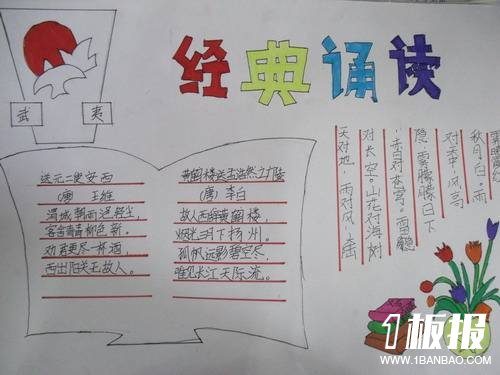 经典诵读
武 夷
送元二使安西
(唐) 王维
渭城朝雨浥轻尘,
客舍青青柳色新.
劝君更尽一杯酒,
西出阳关无故人.
黄鹤楼送孟浩然之广陵
(唐) 李白
故人西辞黄鹤楼,
烟花三月下杨州.
孤帆远影碧空尽,
唯见长江天际流.
天对地·雨对风·大陆
对长空。山花对海树
·赤日对苍穹。雷隐
隐·雾朦朦日下
对天中·风高
秋月白·雨
霁晚霞红
1板报
WWW.1BANBAO.COM